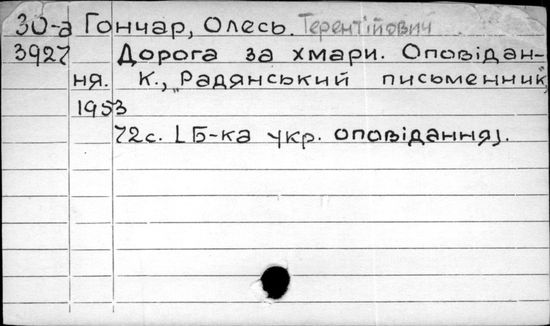 30-а Гончар, Олесь. Терентійович
3927 Дорога за хмари. Оповідан-
ня. К., „Радянський письменник",
1953
72с. [Б-ка укр. оповідання].